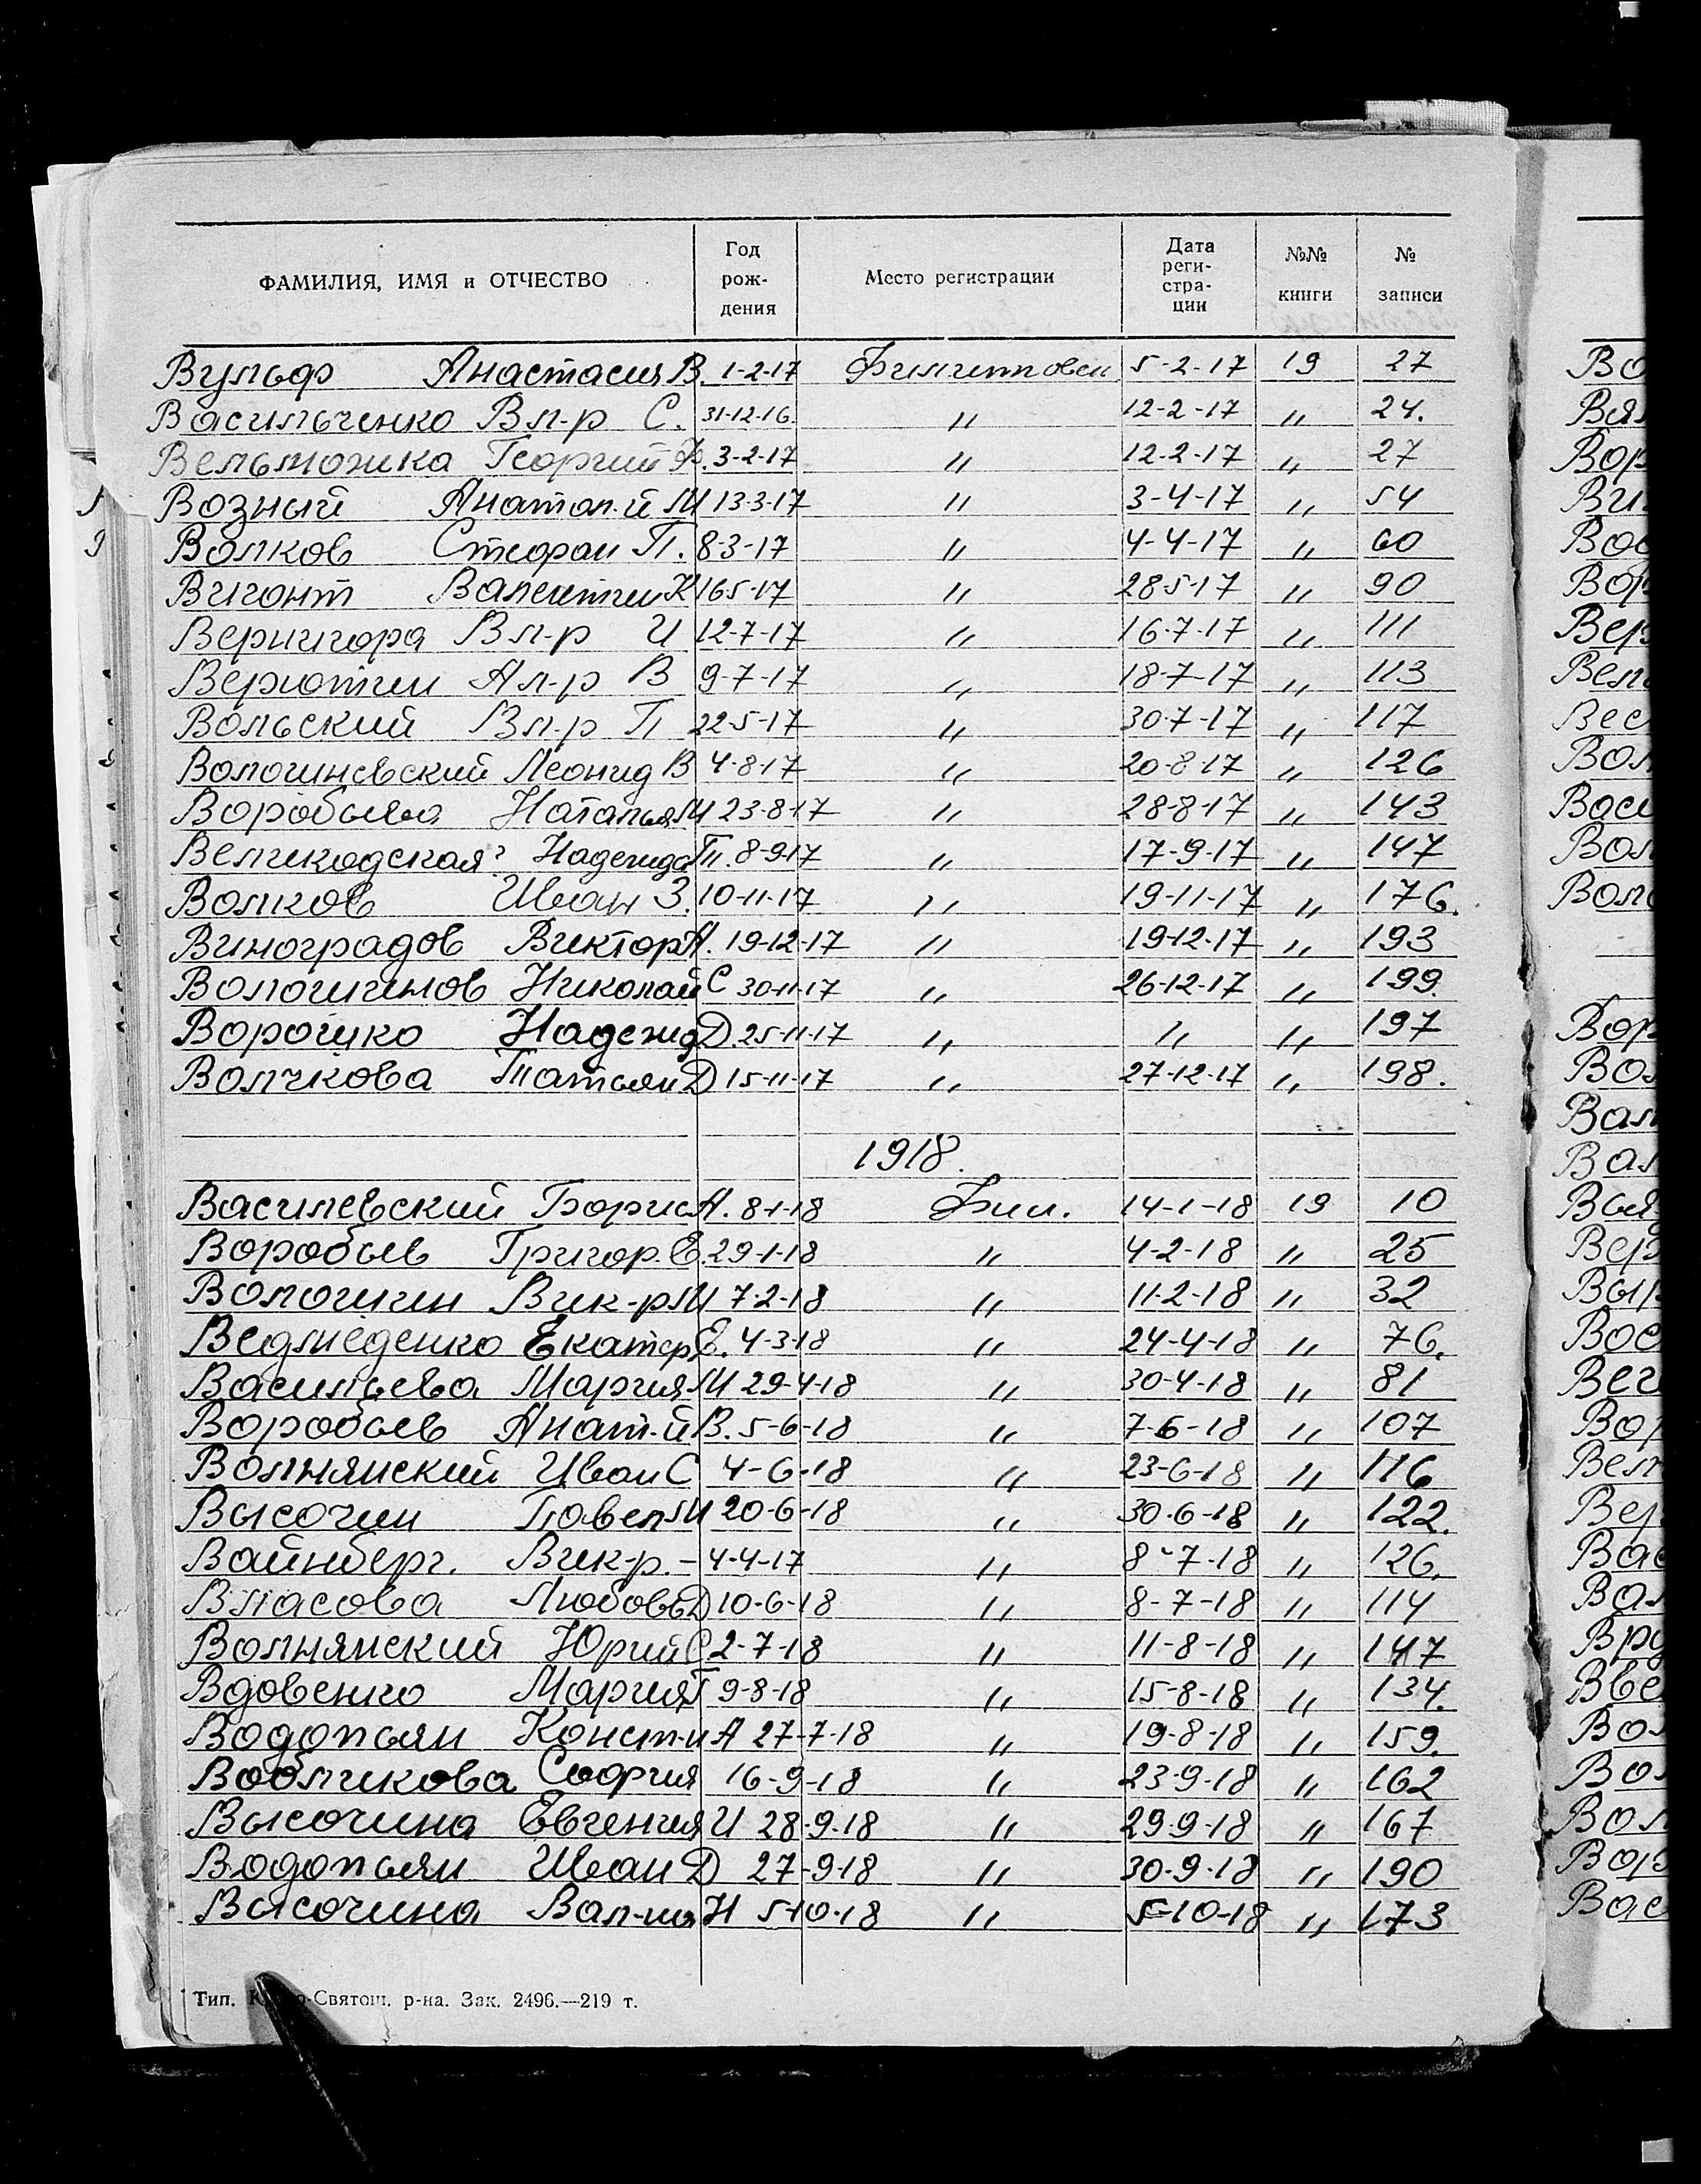 ФАМИЛИЯ, ИМЯ и ОТЧЕСТВО Год рож-дения Место регистрации Дата реги-стра-ции №№ книги № записи
Вульф Анастасия В. 1-2-17 5-2-17 19 27
Васильченко Вл-р С. 31-12-16 " 12-2-17 " 24.
Вельможка Георгий Ф. 3-2-17 " 12-2-17 " 27
Возный Анатол.й М 13-3-17 " 3-4-17 " 54
Волков Стефан П. 8-3-17 " 4-4-17 " 60
Вигонт Валентин К 16-5-17 " 28-5-17 " 90
Вернигора Вл-р И 12-7-17 " 16-7-17 " 111
Верютин Ал-р В 9-7-17 " 18-7-17 " 113
Вольский Вл-р П 22-5-17 " 30-7-17 " 117
Вологиневский Леонид В 4-8-17 " 20-8-17 " 126
Воробьева Наталья М 23-8-17 " 28-8-17 " 143
Великодская? Надежда П. 8-9-17 " 17-9-17 " 147
Волков Иван З. 10-11-17 " 19-11-17 " 176.
Виноградов Виктор А. 19-12-17 " 19-12-17 " 193
Николай С 30-11-17 " 26-12-17 " 199.
Ворошко Надежд Д. 25-11-17 " " " 197
Волчкова Татьян Д 15-11-17 " 27-12-17 " 198.
1918.
Василевский Борис А. 8-1-18 Фил. 14-1-18 19 10
Воробьев Григор. Е. 29-1-18 " 4-2-18 " 25
Вологин Вик-р М 7-2-18 " 11-2-18 " 32
Ведмеденко Екатер Е. 4-3-18 " 24-4-18 " 76.
Васильева Мария М 29-4-18 " 30-4-18 " 81
Воробьев Анат.й В. 5-6-18 " 7-6-18 " 107
Волнянский Иван С 4-6-18 " 23-6-18 " 116
Высочин Павел М 20-6-18 " 30-6-18 " 122.
Вайнберг. Вик-р. - 4-4-17 " 8-7-18 " 126.
Власова Любовь Д 10-6-18 " 8-7-18 " 114
Волнянский Юрий С 2-7-18 " 11-8-18 " 147
Вдовенко Мария Т 9-8-18 " 15-8-18 " 134.
Водопьян Конст-н А 27-7-18 " 19-8-18 " 159.
Вобликова София 16-9-18 " 23-9-18 " 162
Высочина Евгения И 28-9-18 " 29-9-18 " 167
Водопьян Иван Д 27-9-18 " 30-9-18 " 190
Высочина Вал-на Н 5-10-18 " 5-10-18 " 173
Тип. Святош. р-на. Зак. 2496.—219 т.